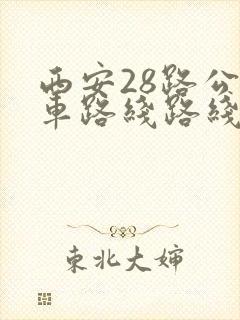 西安28路公
車路綫路綫
東北大婶